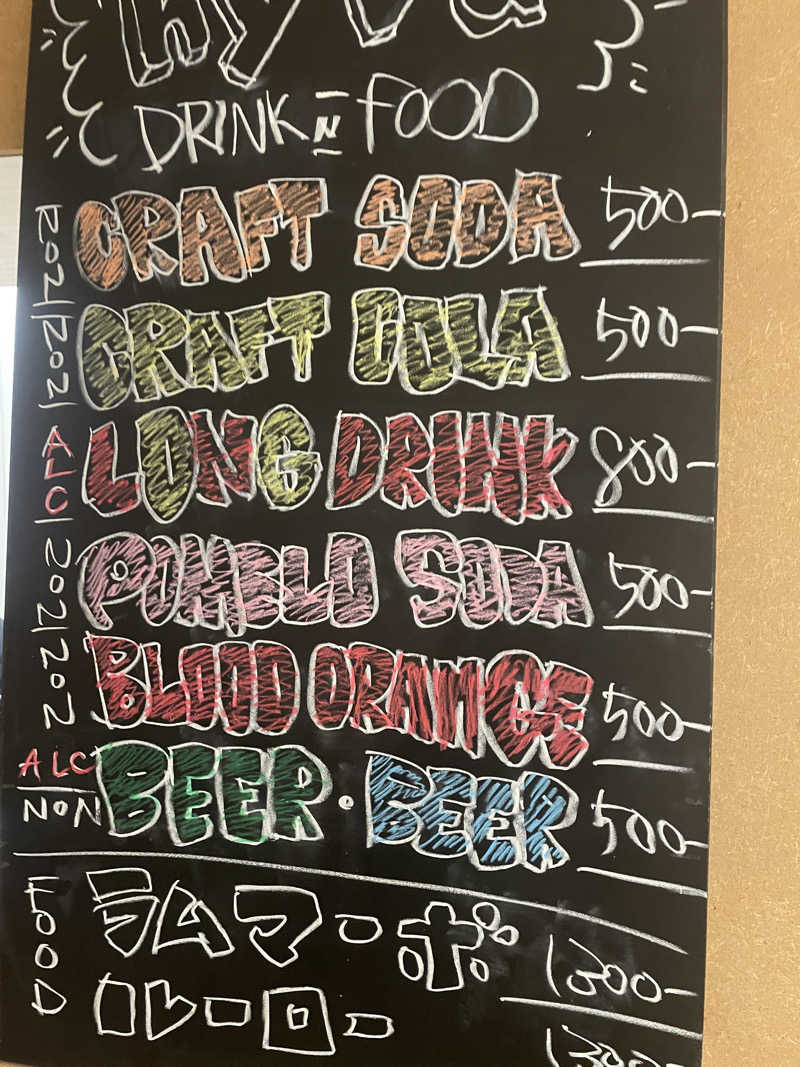 DRINK N FOOD
NON CRAFT SODA 500-
NON CRAFT COLA 500-
ALC LONG DRINK 800-
NON POMELO SODA 500-
NON BLOOD ORANGE 500-
ALC NON BEER・BEER 500-
FOOD ラムマーボ 1300-
ルーロー 1300-